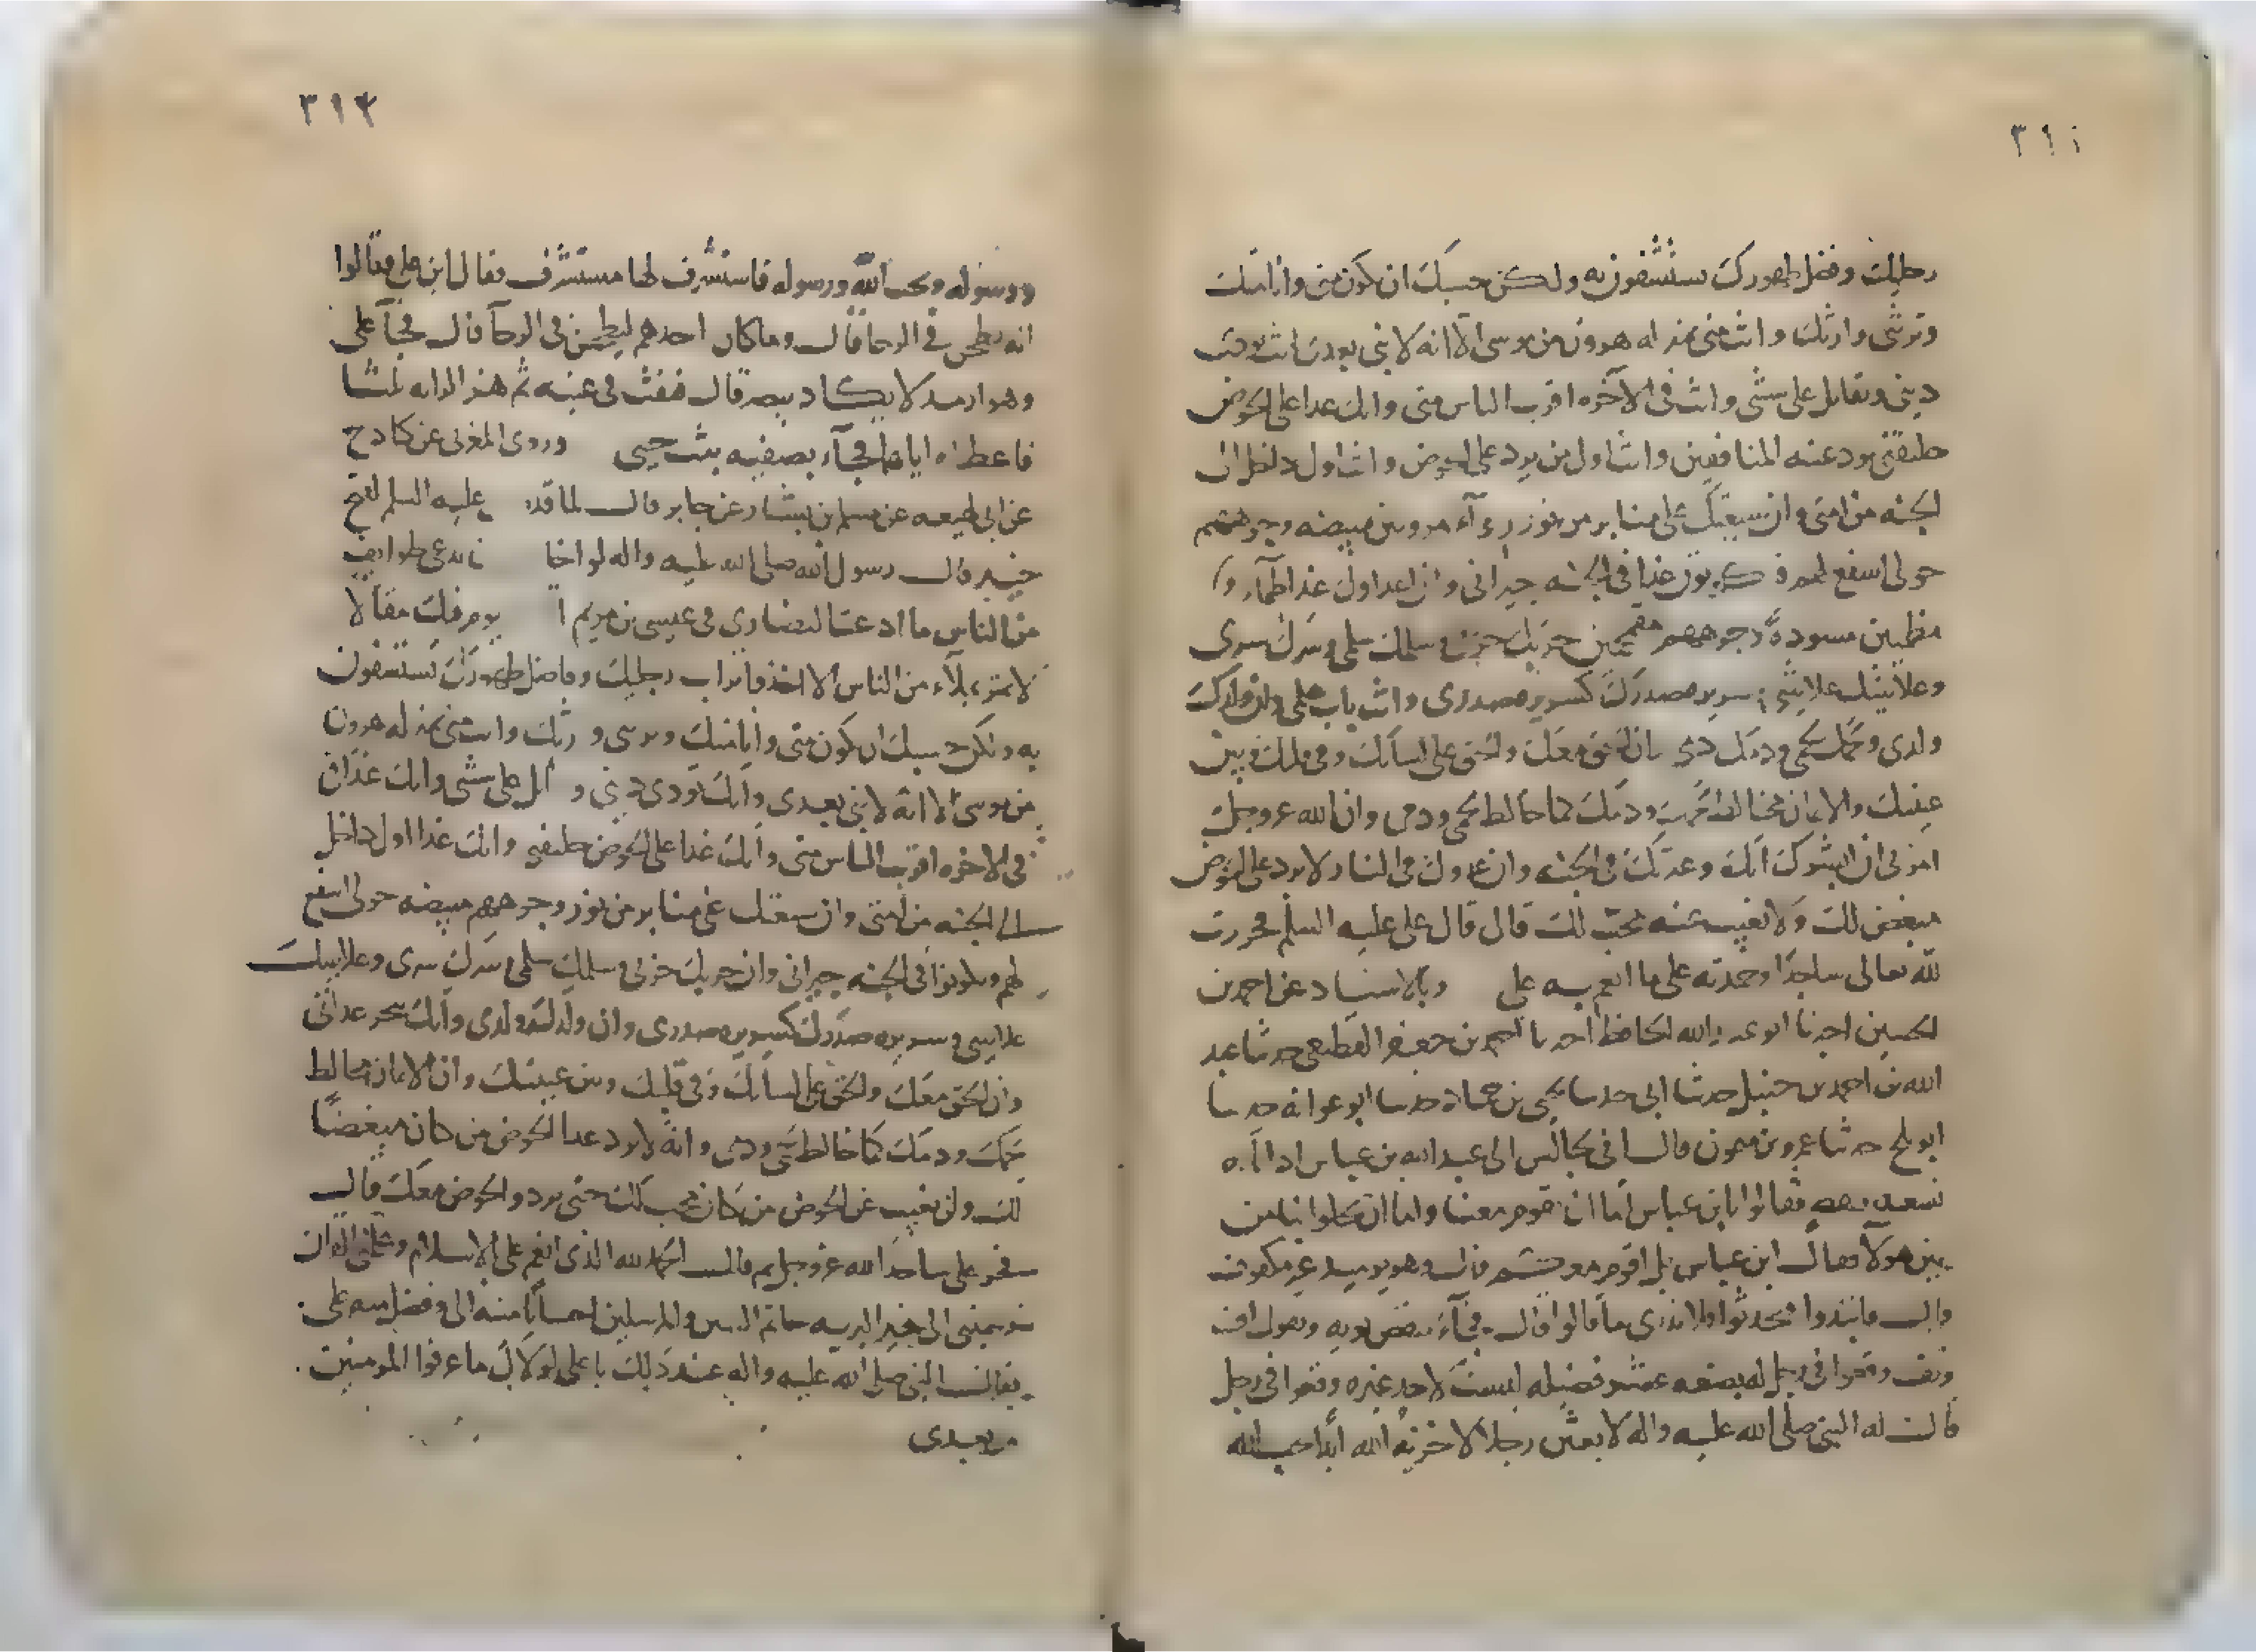 ٣١١
رجليك وفضل طهورك ستشفون به ولكن حسبك ان تكون مني وانا منك
وترثني وارثك وانت مني بمنزله هرون من موسى الا انه لا نبي بعدى انت تودى
ديني وتقاتل على سنتي وانت في الآخره اقرب الناس منى وانك غدا على الحوض
خليفتى تذود عنه المنافقين وانت اول من يرد على الحوض وانت اول داخل
الجنه من امتى وان شيعتك على منابر من نور رواء مرويين مبيضه وجوههم
حولى اشفع لهم فيكونون غدا في الجنه جيرانى وان اعداوك غدا ظمآء
مظمين مسودة وجوههم مقمحين حربك حربى وسلمك سلمى وسرك سرى
وعلانيتك علانيتى وسريره صدرك كسريره صدرى وانت باب علمى وان ولدك
ولدى ولحمك لحمى ودمك دمى وان الحق معك والحق على لسانك وفى قلبك وبين
عينيك والايمان مخالط لحمك ودمك كما خالط لحمى ودمى وان الله عز وجل
امرنى ان ابشرك انك وعترتك فى الجنه وان عدوك فى النار لا يرد على الحوض
مبغض لك ولا يغيب عنه محب لك قال قال على عليه السلم فخررت
لله تعالى ساجدا وحمدته على ما انعم به على وبالاسناد عن احمد بن
الحسين اخبرنا ابو عبد الله الحافظ احمد بن جعفر القطيعى حدثنا عبد
الله بن احمد بن حنبل حدثنا ابى حدثنا يحيى بن حماد حدثنا ابو عوانه حدثنا
ابو بلج حدثنا عمرو بن ميمون قال انى لجالس الى عبد الله بن عباس اذ اتاه
تسعه رهط فقالوا يابن عباس اما ان تقوم معنا واما ان تخلوا بنا من
بين هولآ فقال ابن عباس بل اقوم معكم قال وهو يوميذ غير مكفوف
قال فابتدوا فتحدثوا فلا ندرى ما قالوا قال فجآء ينفض ثوبه ويقول اف
وتف وقعوا فى رجل له بضعه عشر فضيله ليست لاحد غيره وقعوا فى رجل
قال له النبى صلى الله عليه واله لابعثن رجلا لا يخزيه الله ابدا يحب الله
٣١٢
ورسوله ويحبه الله ورسوله فاستشرف لها مستشرف فقال اين على فقالوا
انه يطحن في الرحا قال وما كان احدهم ليطحن فى الرحآ قال فجآ على
وهو ارمد لا يكاد يبصر قال فنفث فى عينيه ثم هز الرايه ثلثا
فاعطاه اياها فجآء بصفيه بنت حيى وروى المغربى عن كادح
عن ابى لهيعه عن مسلم بن يسار عن جابر قال لما قدم عليه السلم لفتح
خيبر قال رسول الله صلى الله عليه واله لولا تدعى طوايف
من الناس ما ادعت النصارى فى عيسى بن مريم يوم فيك مقالا
لا تمر بملآء من الناس الا اخذوا تراب رجليك وفاضل طهورك تستشفون
به ولكن حسبك ان تكون منى وانا منك وترثنى وارثك وانت منى بمنزله هرون
من موسى الا انه لا نبى بعدى وانك تودى دينى وتقاتل على سنتى وانك غدا
فى الاخره اقرب الناس منى وانك غدا على الحوض خليفتى وانك غدا اول داخل
الى الجنه من امتى وان شيعتك على منابر من نور وجوههم مبيضه حولى اشفع
لهم ويكونوا فى الجنه جيرانى وان حربك حربى وسلمك سلمى وسرك سرى وعلانيتك
علانيتى وسريره صدرك كسريره صدرى وان ولدك ولدى وانك منجز عداتى
وان الحق معك والحق على لسانك وفى قلبك وبين عينيك وان الايمان مخالط
لحمك ودمك كما خالط لحمى ودمى وانه لا يرد غدا الحوض من كان مبغضا
لك ولن يغيب عن الحوض من كان محب لك حتى يردوا الحوض معك قال
فخر على ساجدا لله عز وجل ثم قال الحمد لله الذى انعم على بالاسلام وعلمنى القران
وحببنى الى خير البريه خاتم النبيين والمرسلين احسانا منه الى وفضل منه على
فقال النبى صلى الله عليه واله عند ذلك يا على لولاك ما عرفوا المومنين
من بعدى